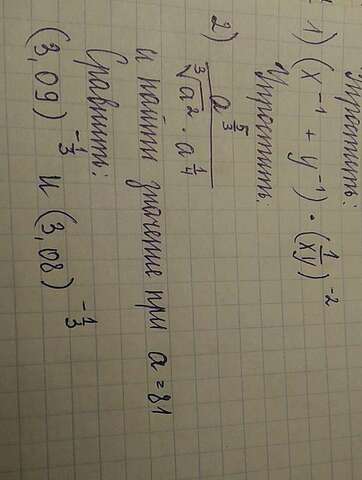 Упростить:
1) (x⁻¹ + y⁻¹) · (1/xy)⁻²
Упростить:
2) a^(5/3) / (∛a² · a^(1/4))
и найти значение при a = 81
Сравнить:
(3,09)^(-1/3) и (3,08)^(-1/3)